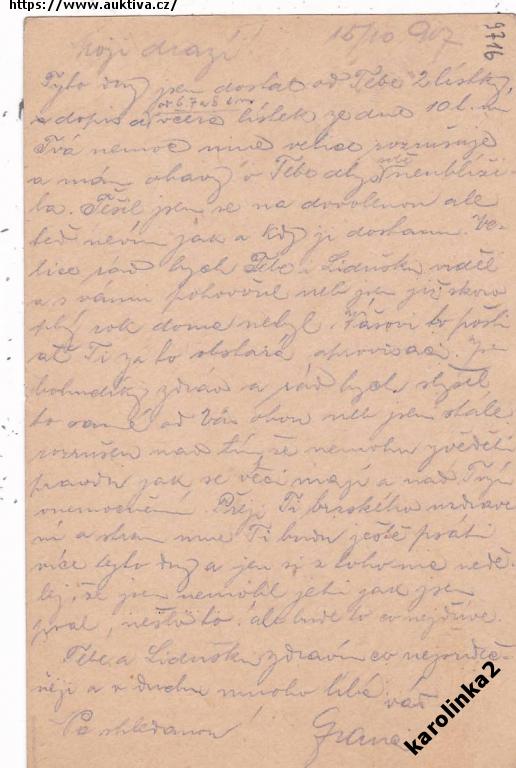 https://www.auktiva.cz/
9716
Moji drazí! 15/10 917
Tyto dny jsem dostal od Tebe 2 lístky
a dopis a včera lístek ze dne 10. t.m.
Tvá nemoc mne velice rozrušuje
a mám obavy o Tebe aby Ti neublíži-
la. Těšil jsem se na dovolenou ale
teď nevím jak a kdy ji dostanu. Ve-
lice rád bych Tebe i Lidušku viděl
a s vámi pohovořil neb jsem již skoro
plný rok doma nebyl. to pošli
ať Ti za to obstará aprovisaci. Jsem
bohudíky zdráv a rád bych slyšel
to samé od Vás obou neb jsem stále
rozrušen nad tím, že nemohu zvěděti
pravdu jak se věci mají a nad Tvým
onemocněním. Přeji Ti brzského uzdrave-
ní a stran mne Ti budu ještě psáti
více tyto dny a jen si z toho nic nedě-
lej, že jsem nemohl jeti jak jsem
psal, nešlo to, ale bude to co nejdříve.
Tebe a Lidušku zdravím co nejsrdeč-
něji a v duchu mnoho líbá
váš
Na shledanou!
Franc
karolinka2